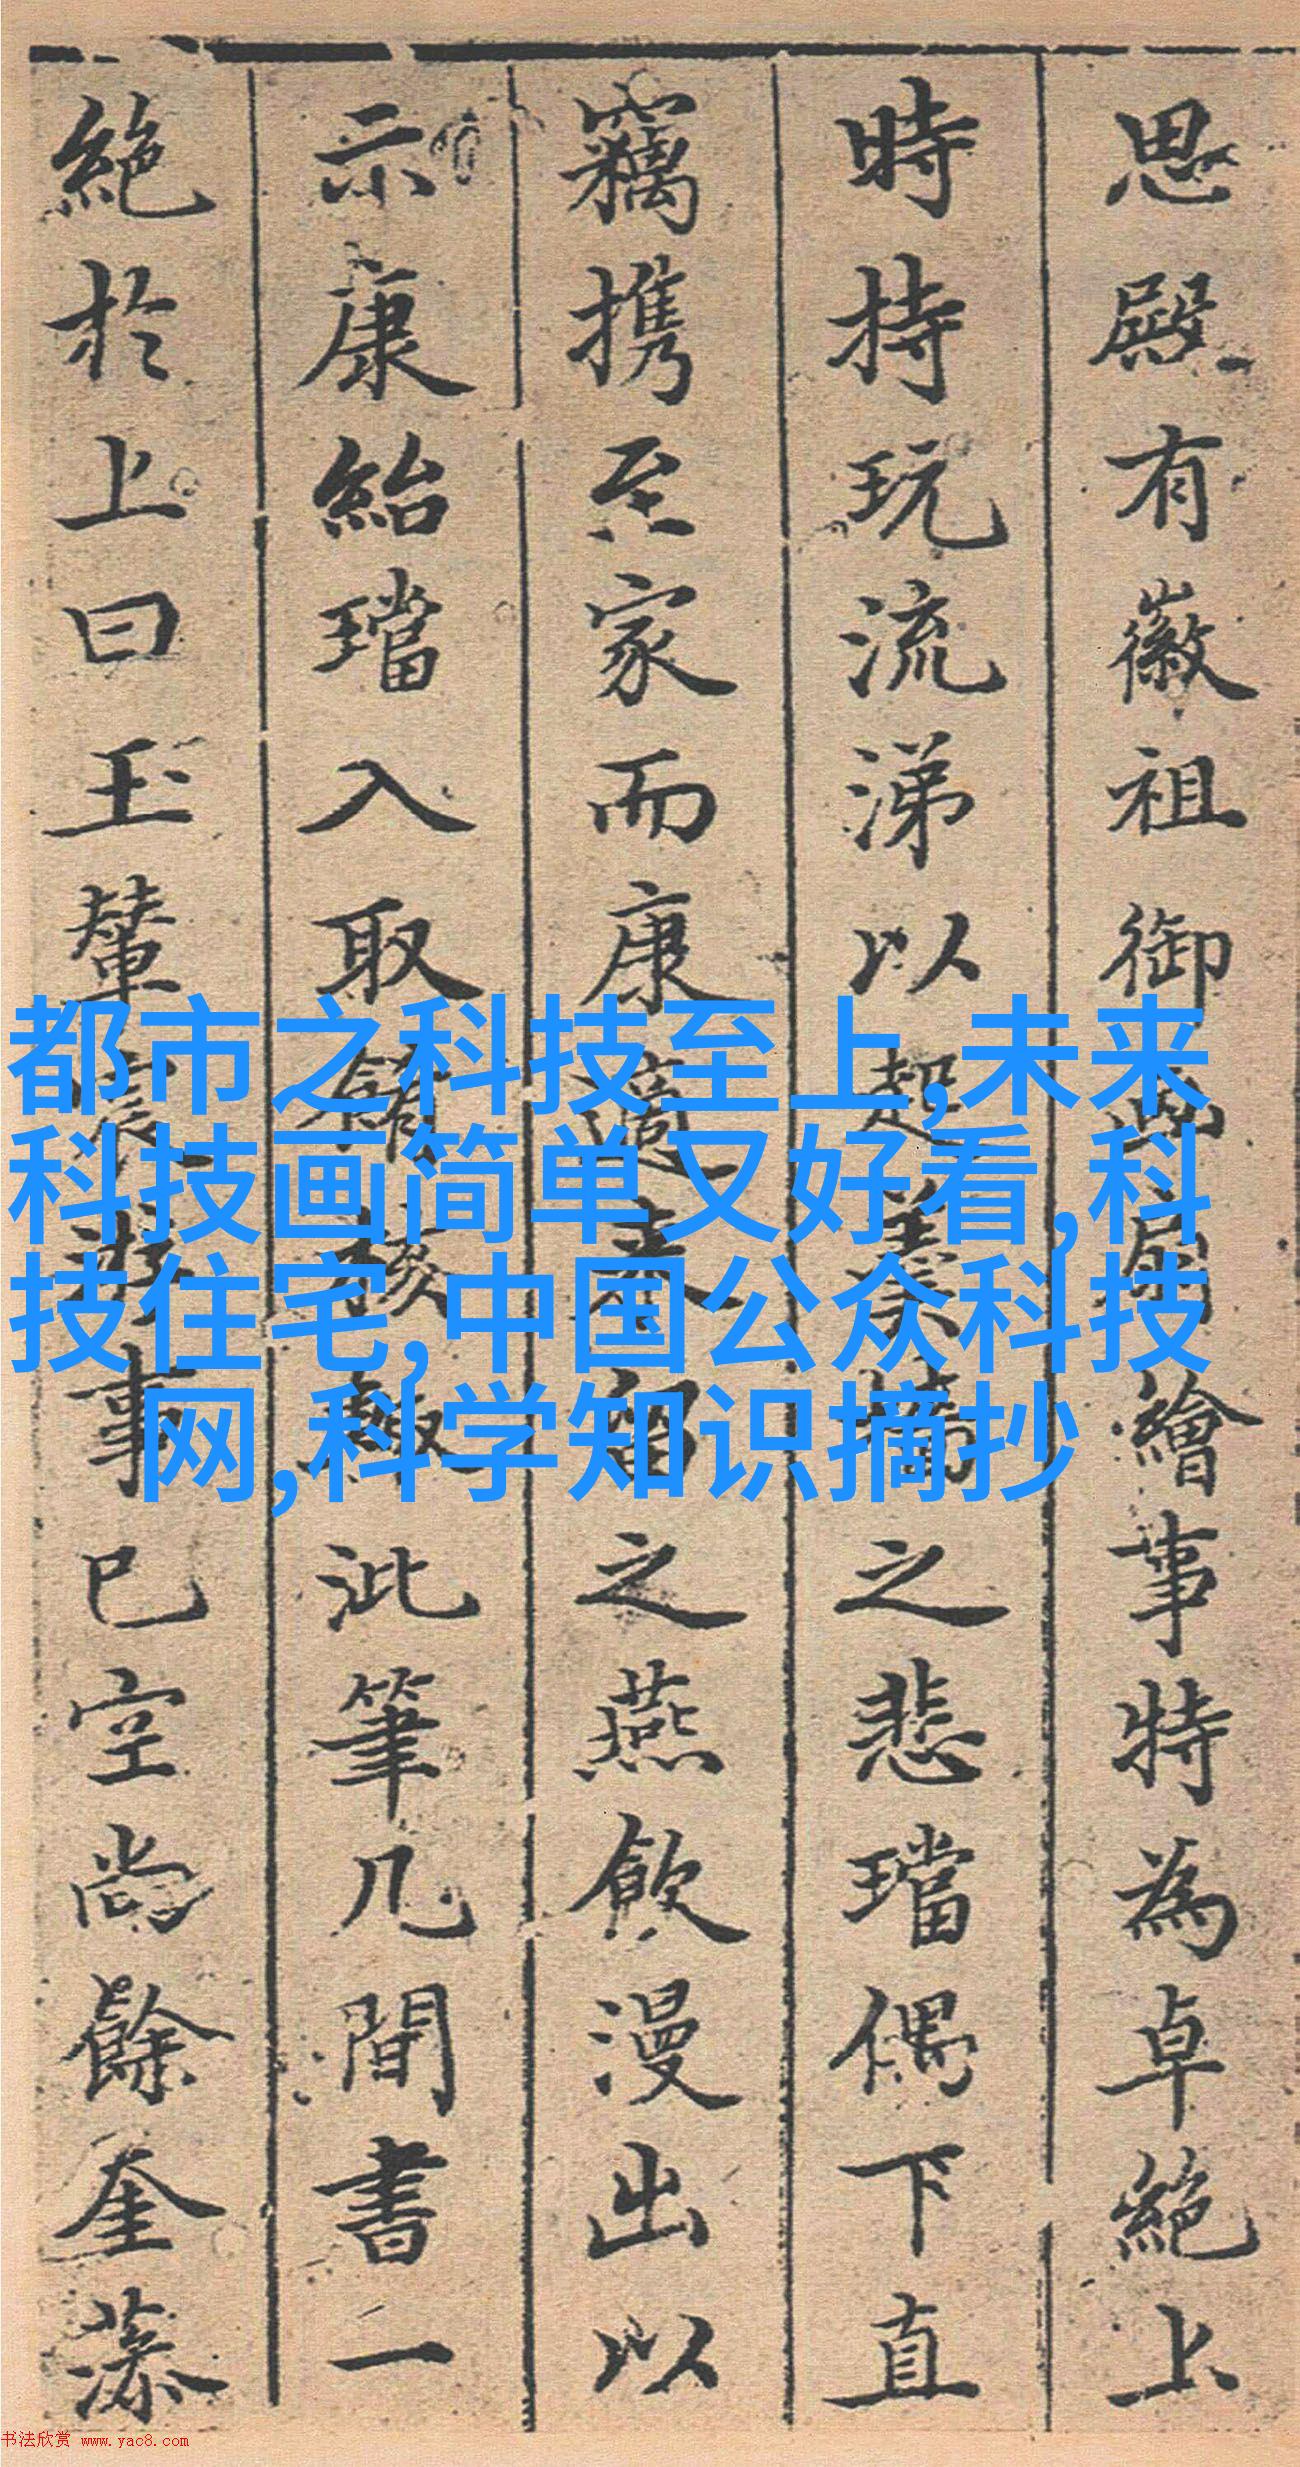 思殿有徽祖御畫扇繪事特為卓絕上
時持玩流涕以起羹墻之悲璫偶下直
竊携至家而康適來留之燕飲漫出以
示康紿璫入取殽核輒泚筆几間書一
絕於上曰玉輦宸游事已空尚餘奎藻
都市之科技至上,未来
科技画简单又好看,科
技住宅,中国公众科技
网,科学知识摘抄
书法欣赏 www.yac8.com